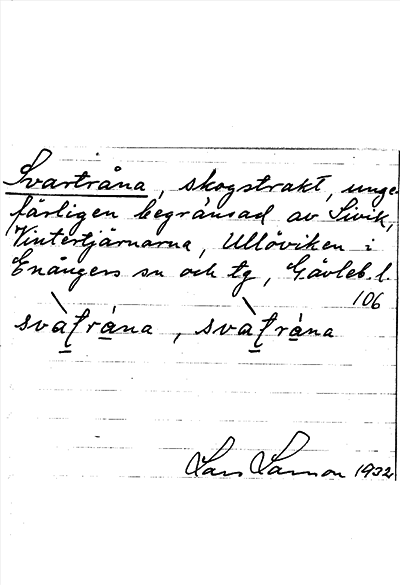 Svartråna, skogstrakt, unge-
färligen begränsad av Sivik,
Vintertjärnarna, Ullöviken i
Enångers sn och tg, Gävleb. l.
106
svàt̯rána, svàt̯rána
Lars Larson 1932